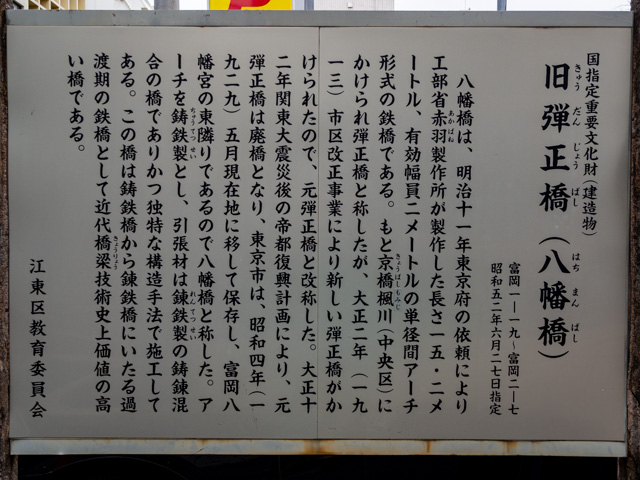 国指定重要文化財(建造物)
旧弾正橋(八幡橋)
きゅうだんじょうばし はちまんばし
富岡一―一九~富岡二―七
昭和五二年六月二七日指定
八幡橋は、明治十一年東京府の依頼により
工部省赤羽製作所が製作した長さ一五・二メ
あかばね
ートル、有効幅員二メートルの単径間アーチ
形式の鉄橋である。もと京橋楓川(中央区)に
きょうばしもみじ
かけられ弾正橋と称したが、大正二年(一九
一三)市区改正事業により新しい弾正橋がか
けられたので、元弾正橋と改称した。大正十
二年関東大震災後の帝都復興計画により、元
弾正橋は廃橋となり、東京市は、昭和四年(一
九二九)五月現在地に移して保存し、富岡八
幡宮の東隣りであるので八幡橋と称した。ア
ーチを鋳鉄製とし、引張材は錬鉄製の鋳錬混
ちゅうてつせい れんてつせい
合の橋でありかつ独特な構造手法で施工して
ある。この橋は鋳鉄橋から錬鉄橋にいたる過
渡期の鉄橋として近代橋梁技術史上価値の高
きょうりょう
い橋である。
江東区教育委員会